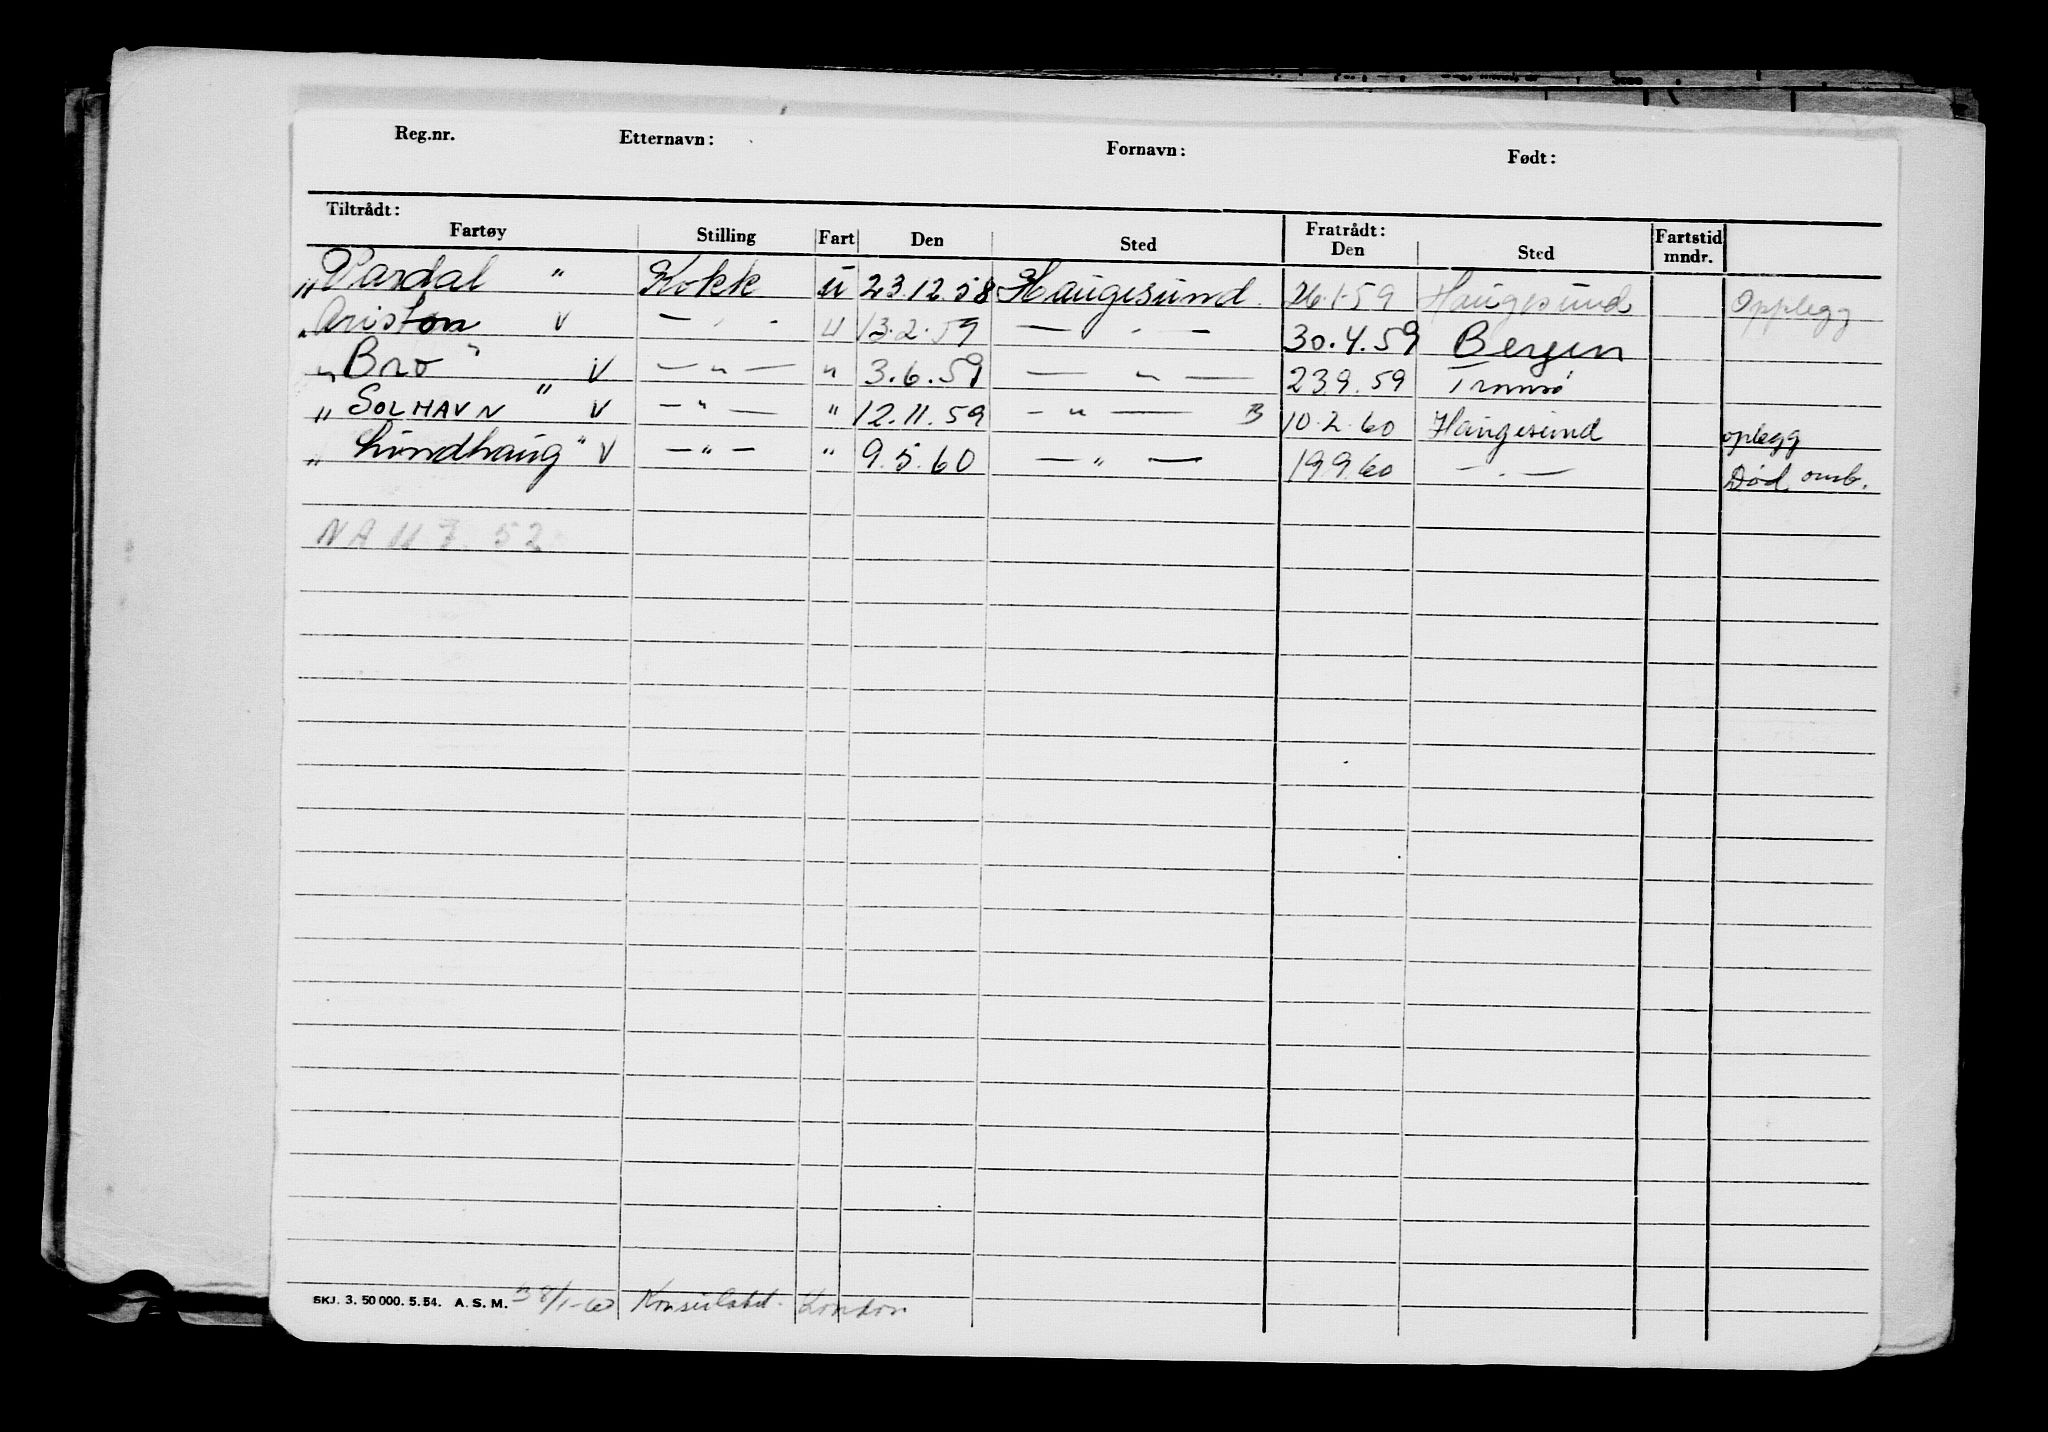 Reg.nr. Etternavn: Fornavn: Født:
Tiltrådt: Fratrådt:
Fartøy Stilling Fart Den Sted Den Sted Fartstid mndr.
"Pardal" Kokk U 23.12.58 Haugesund. 26.1.59 Haugesund Opplegg
"Ariston V — . - U 13.2.59 — . — 30.4.59 Bergen
"Bro" V — " — " 3.6.59 — " — 23.9.59 Tromsø
"SOLHAVN" V — " — " 12.11.59 — " — B 10.2.60 Haugesund oplegg
"Lundhaug" V — " — " 9.5.60 — " — 19.9.60 — . — Død omb.
NA 52
SKJ. 3. 50 000. 5. 54. A. S. M. Konsulatet. London